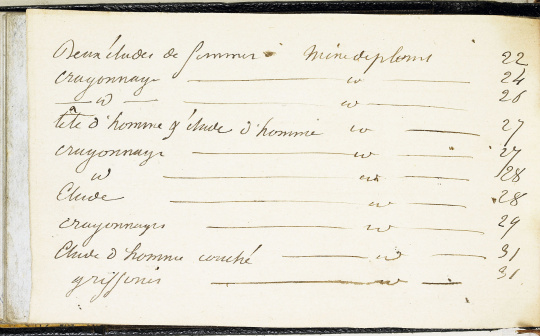 Deux études de femmes Mine de plomb 22
crayonnage — id — 24
— id — — id — 26
tête d'homme & étude d'homme id — 27
crayonnage — id — 27
id — id — 28
Etude — id — 28
crayonnages — id — 29
Etude d'homme couché — id — 31
griffonis — id — 31